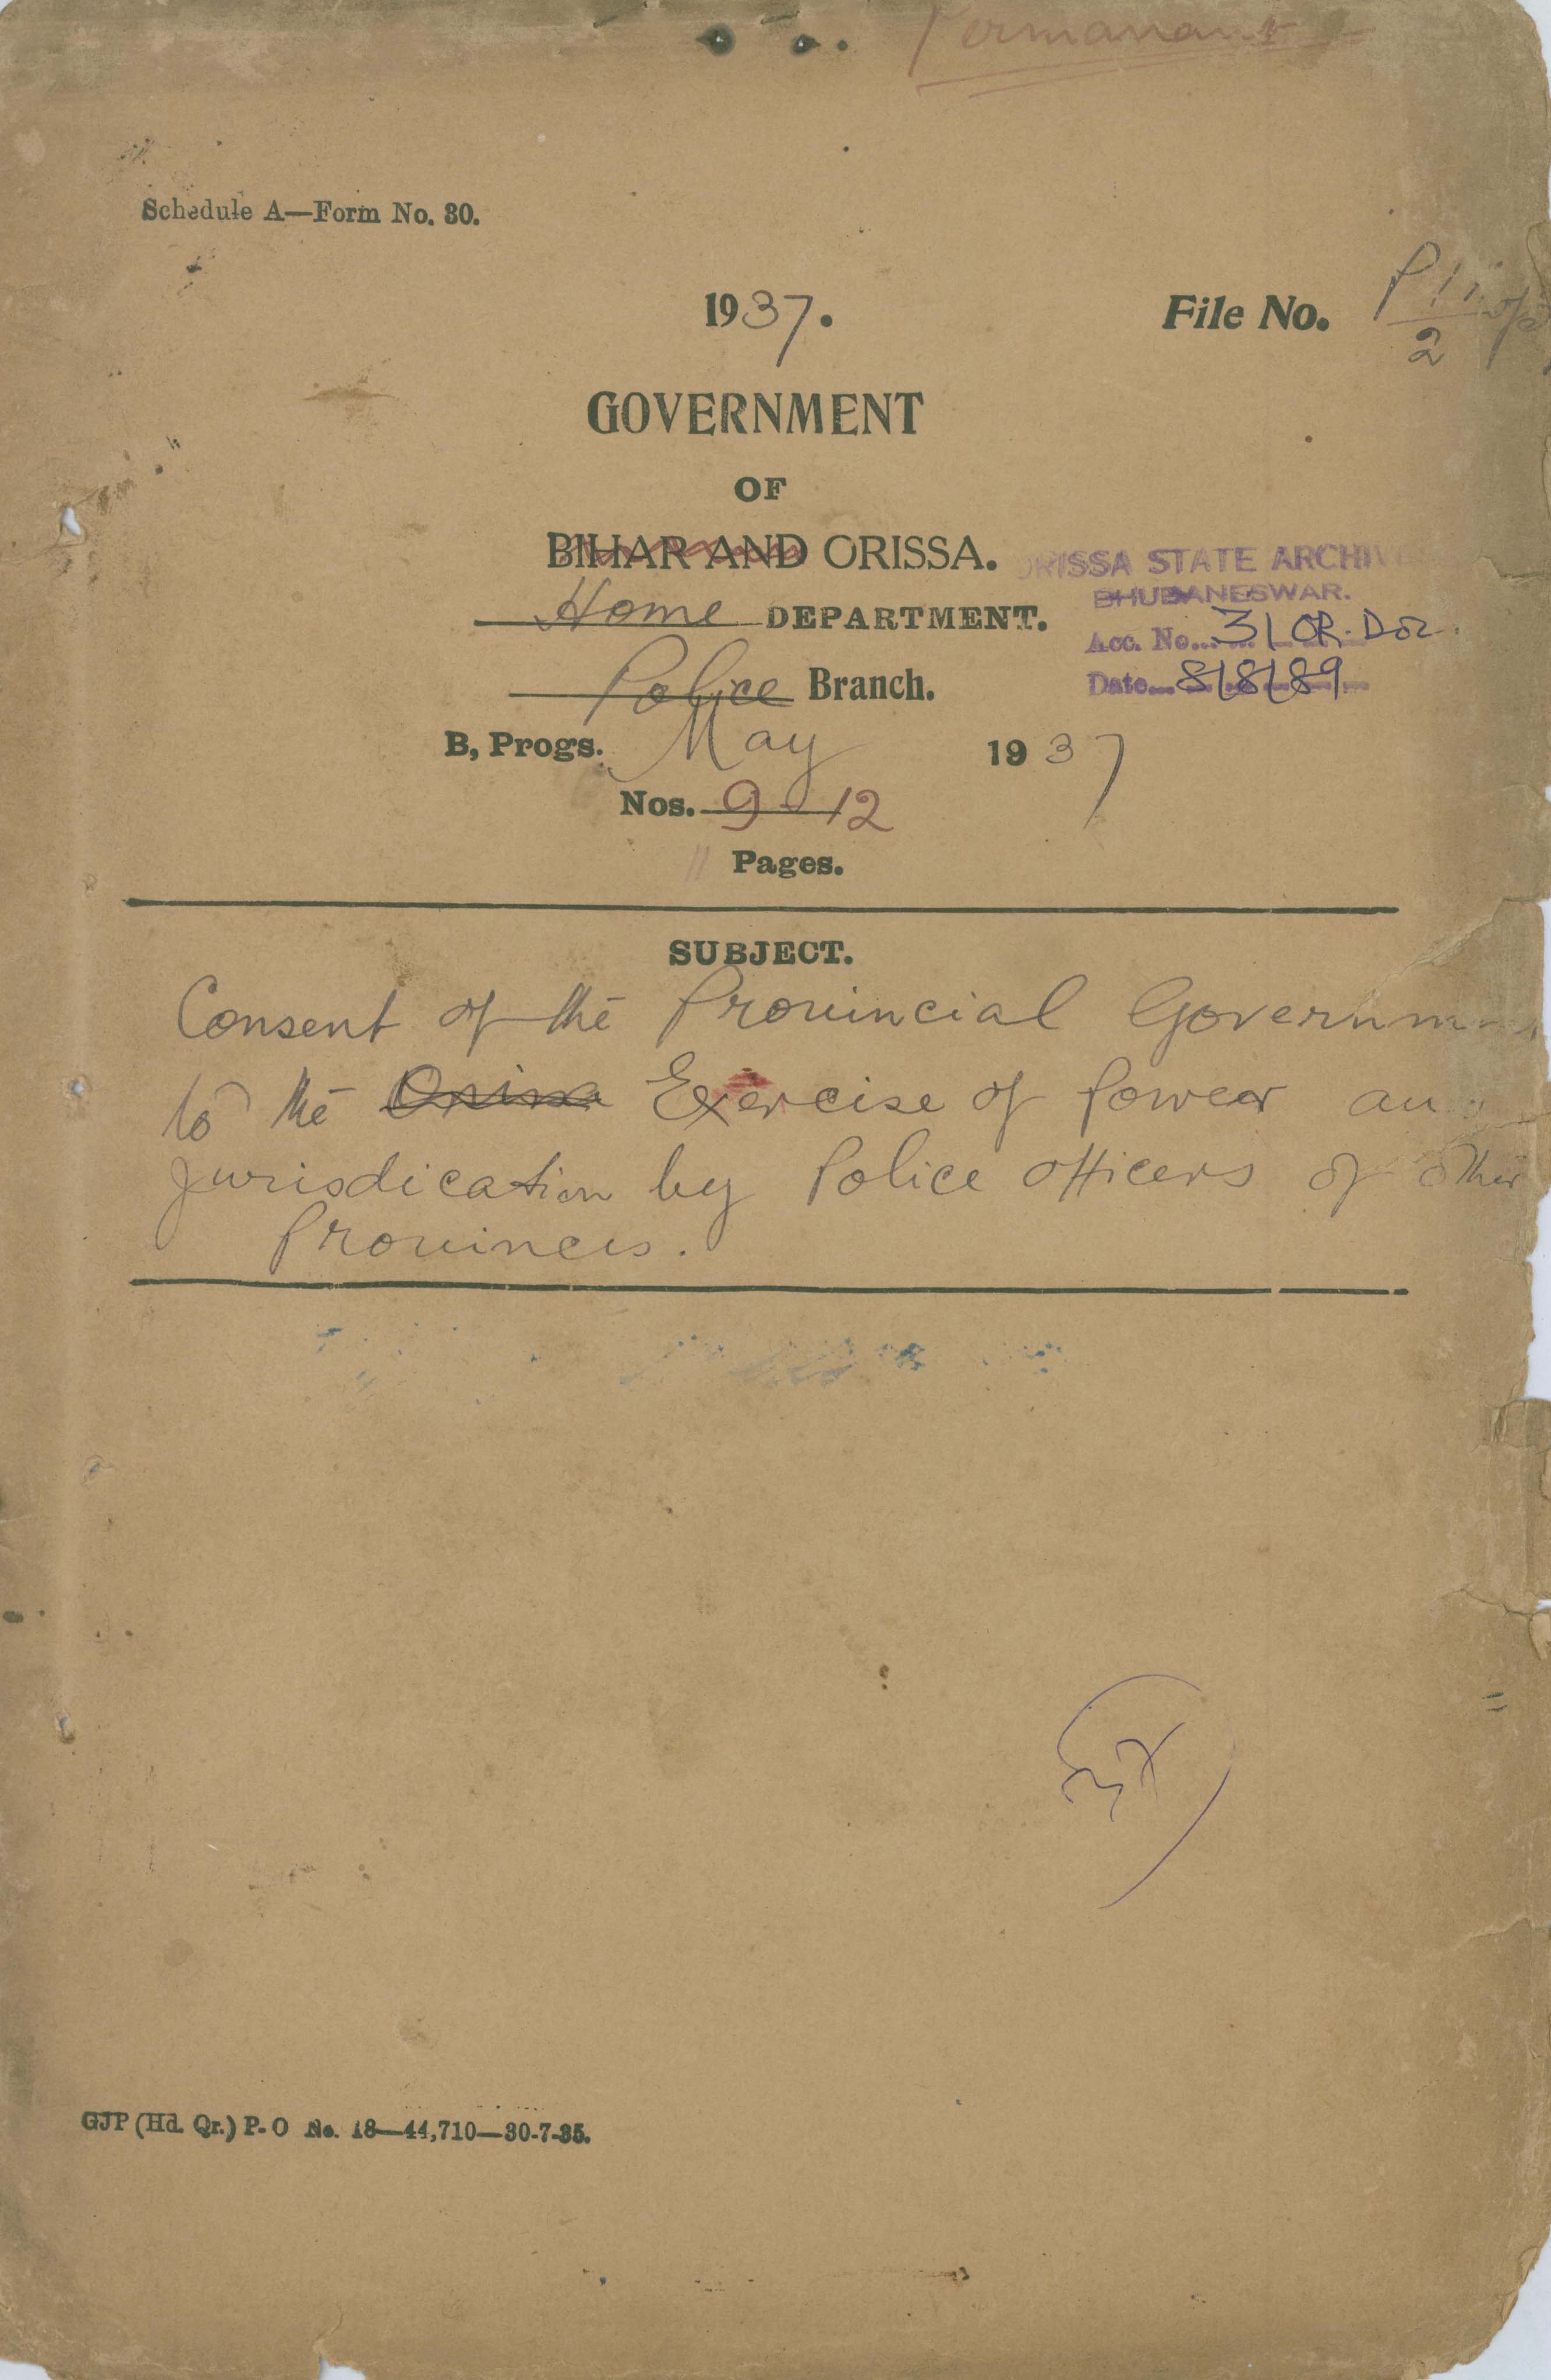 Permanant
Schedule A—Form No. 30.
1937.
File No.
2
GOVERNMENT
OF
BIHAR AND ORISSA.
ORISSA STATE ARCHIV
BHUBANESWAR.
Home DEPARTMENT.
Acc. No... 31 OR. Doc.
Police Branch.
Date... 8/8/89
B, Progs. May 1937
Nos. 9-12
11 Pages.
SUBJECT.
Consent of the Provincial Governm
to the Orissa Exercise of Power an
Jurisdication by Police officers of other
Provinces.
GJP (Hd. Qr.) P. O No. 18—44,710—30-7-35.